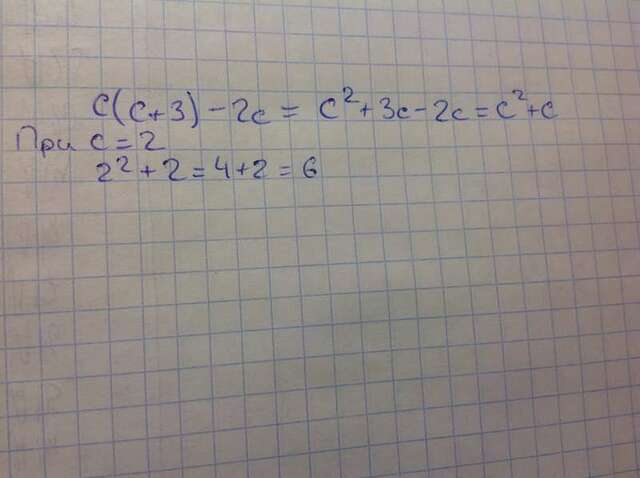 c(c+3)-2c = c²+3c-2c=c²+c
При c=2
2²+2=4+2=6